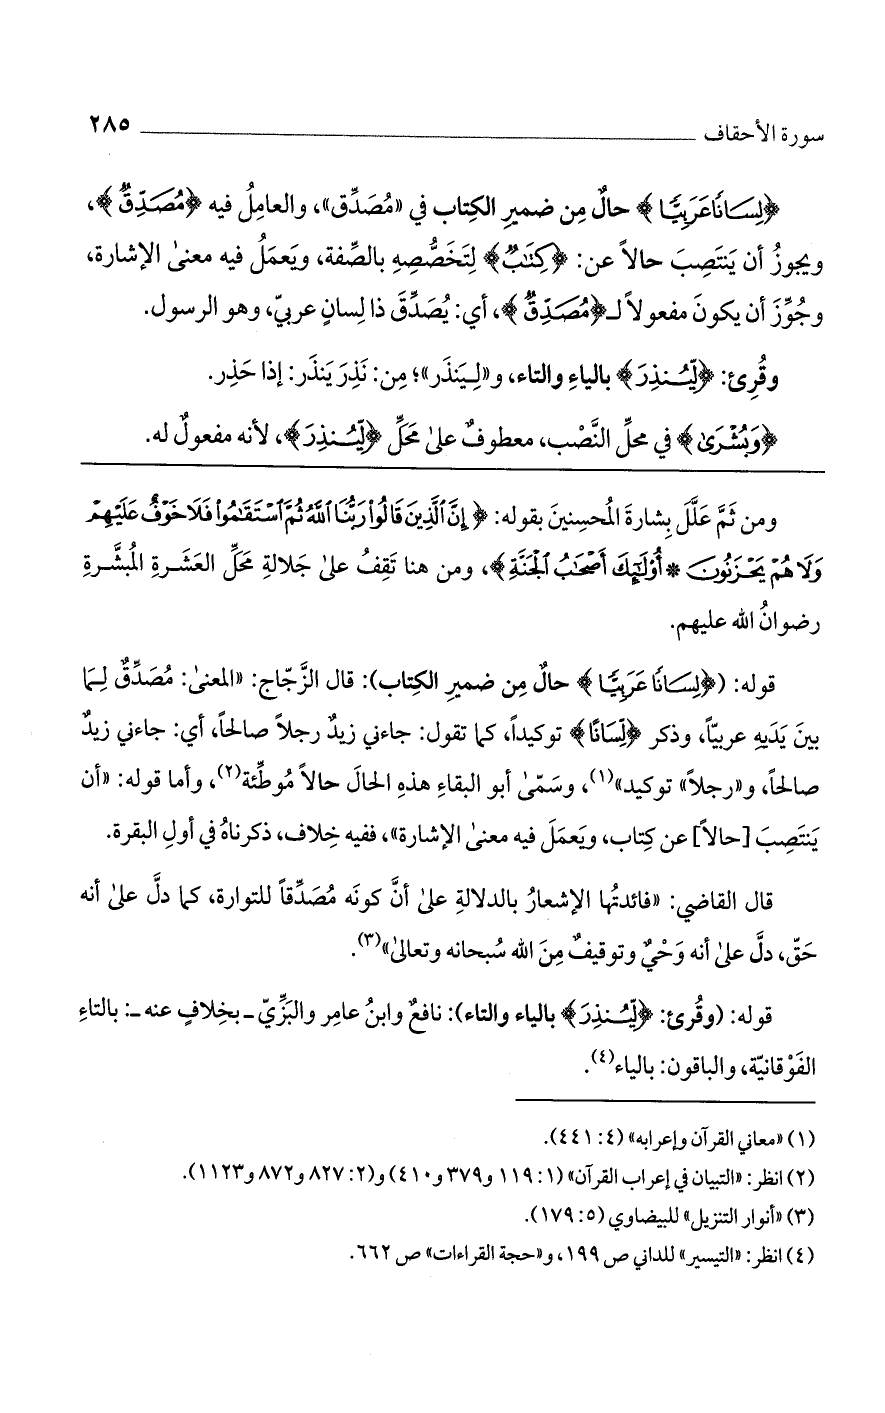 سورة الأحقاف ٢٨٥
﴿لِسَانًا عَرَبِيًّا﴾ حالٌ مِن ضميرِ الكِتاب في «مُصَدِّق»، والعامِلُ فيه ﴿مُصَدِّقٌ﴾،
ويجوزُ أن يَنتَصِبَ حالاً عن: ﴿كِتَٰبٌ﴾ لِتَخَصُّصِهِ بالصِّفة، ويَعمَلُ فيه معنىٰ الإشارة،
وجُوِّزَ أن يكونَ مفعولاً لـ﴿مُصَدِّقٌ﴾، أي: يُصَدِّقَ ذا لِسانٍ عربيّ، وهو الرسول.
وقُرِئ: ﴿لِّيُنذِرَ﴾ بالياءِ والتاء، و«لِـيَنذَر»؛ مِن: نَذِرَ يَنذَر: إذا حَذِر.
﴿وَبُشْرَىٰ﴾ في محلِّ النَّصْب، معطوفٌ علىٰ مَحَلِّ ﴿لِّيُنذِرَ﴾، لأنه مفعولٌ له.
ومن ثَمَّ عَلَّلَ بِشارةَ المُحسِنينَ بقوله: ﴿إِنَّ الَّذِينَ قَالُوا۟ رَبُّنَا اللَّهُ ثُمَّ اسْتَقَٰمُوا۟ فَلَا خَوْفٌ عَلَيْهِمْ
وَلَا هُمْ يَحْزَنُونَ * أُو۟لَٰٓئِكَ أَصْحَٰبُ الْجَنَّةِ﴾، ومن هنا تَقِفُ علىٰ جَلالةِ مَحَلِّ العَشَـرةِ المُبشَّرةِ
رضوانُ الله عليهم.
قوله: (﴿لِسَانًا عَرَبِيًّا﴾ حالٌ مِن ضميرِ الكِتاب): قال الزَّجّاج: «المعنىٰ: مُصَدِّقٌ لِـمَا
بينَ يَدَيهِ عربيّاً، وذكر ﴿لِّسَانًا﴾ توكيداً، كما تقول: جاءني زيدٌ رجلاً صالحاً، أي: جاءني زيدٌ
صالحاً، و«رجلاً» توكيد»(١)، وسَمّىٰ أبو البقاءِ هذهِ الحالَ حالاً مُوطِّئة(٢)، وأما قوله: «أن
يَنتَصِبَ [حالاً] عن كِتاب، ويَعمَلَ فيه معنىٰ الإشارة»، ففيه خِلاف، ذكرناهُ في أولِ البقرة.
قال القاضي: «فائدتُها الإشعارُ بالدلالةِ علىٰ أنَّ كونَه مُصَدِّقاً للتوارة، كما دلَّ علىٰ أنه
حَقّ، دلَّ علىٰ أنه وَحْيٌ وتوقيفٌ مِنَ الله سُبحانه وتعالىٰ»(٣).
قوله: (وقُرِئ: ﴿لِّيُنذِرَ﴾ بالياء والتاء): نافعٌ وابنُ عامِر والبَزِّيّ ـ بخِلافٍ عنه ـ: بالتاءِ
الفَوْقانيّة، والباقون: بالياء(٤).
(١) «معاني القرآن وإعرابه» (٤: ٤٤١).
(٢) انظر: «التبيان في إعراب القرآن» (١: ١١٩ و٣٧٩ و٤١٠) و(٢: ٨٢٧ و٨٧٢ و١١٢٣).
(٣) «أنوار التنزيل» للبيضاوي (٥: ١٧٩).
(٤) انظر: «التيسير» للداني ص ١٩٩، و«حجة القراءات» ص ٦٦٢.